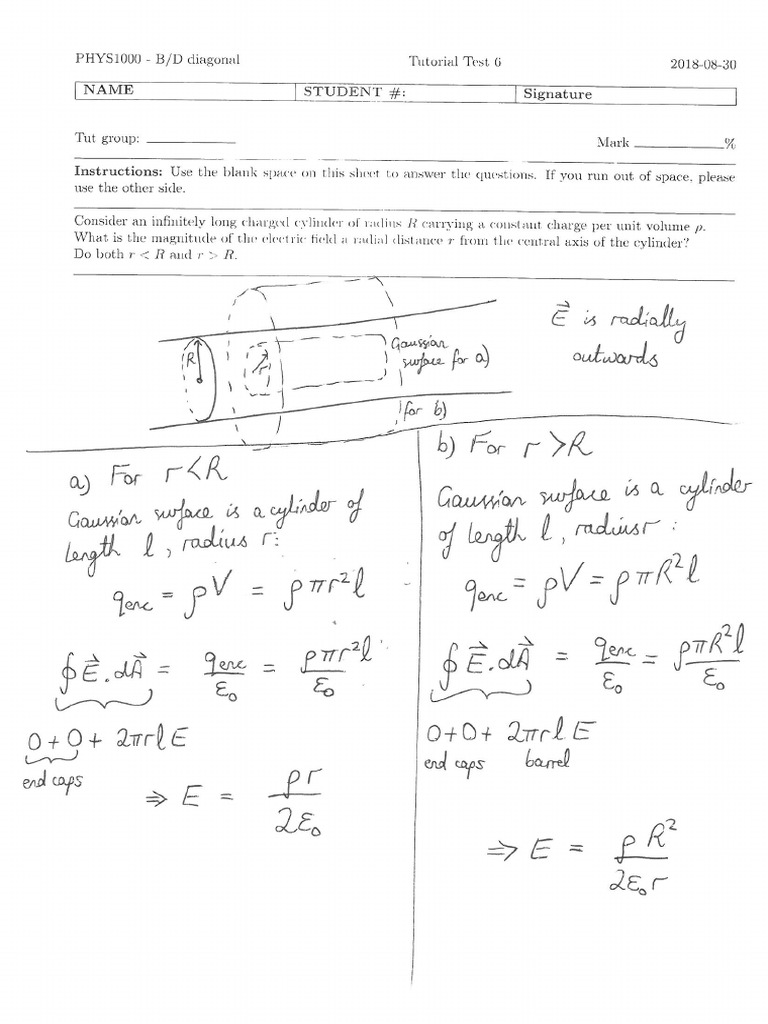 PHYS1000 - B/D diagonal Tutorial Test 6 2018-08-30
NAME STUDENT #: Signature
Tut group: Mark %
Instructions: Use the blank space on this sheet to answer the questions. If you run out of space, please
use the other side.
Consider an infinitely long charged cylinder of radius R carrying a constant charge per unit volume ρ.
What is the magnitude of the electric field a radial distance r from the central axis of the cylinder?
Do both r < R and r > R.
R
r
Gaussian
surface for a)
for b)
E⃗ is radially
outwards
a) For r<R
Gaussian surface is a cylinder of
length l, radius r:
q_enc = ρV = ρπr²l
∮E⃗.dA⃗ = q_enc/ε₀ = ρπr²l/ε₀
0+0+ 2πrlE
end caps
⇒ E = ρr/2ε₀
b) For r >R
Gaussian surface is a cylinder
of length l, radius r:
q_enc = ρV = ρπR²l
∮E⃗.dA⃗ = q_enc/ε₀ = ρπR²l/ε₀
0+0+ 2πrlE
end caps barrel
⇒ E = ρR²/2ε₀r